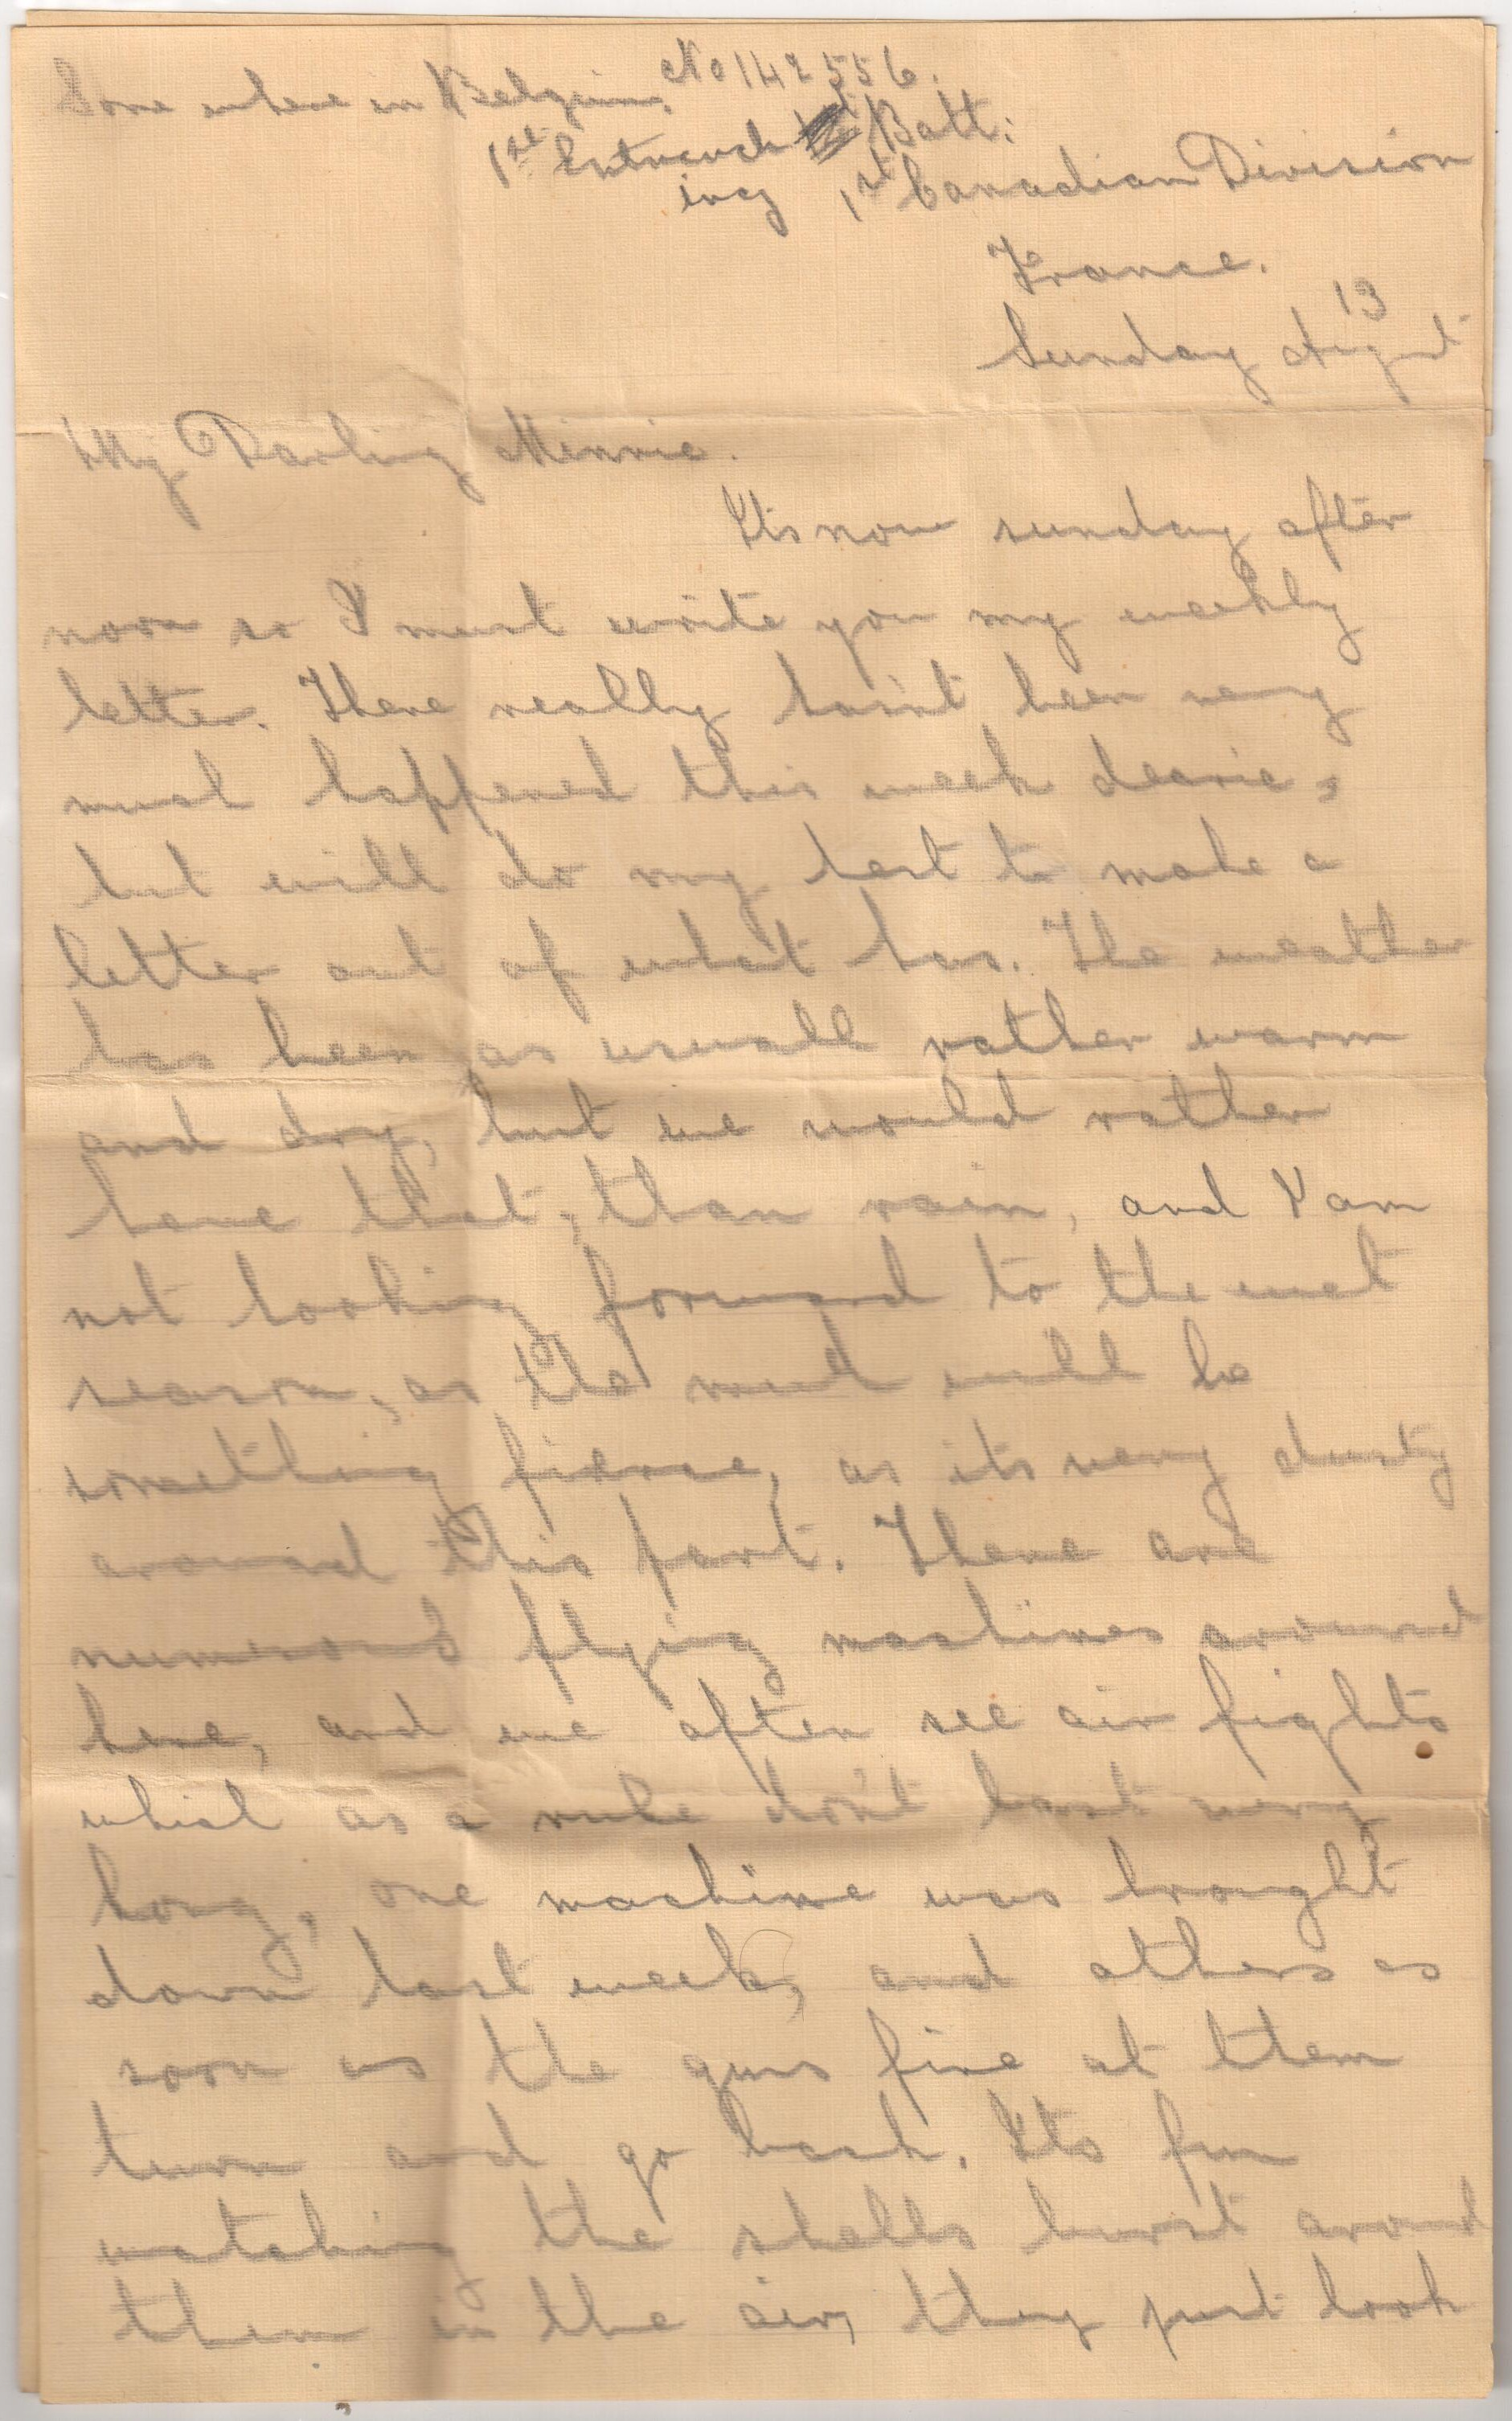 Some where in Belgium, No 142556.
1st Entrench Batt:
ing 1st Canadian Division
France.
13
Sunday August
My Darling Minnie.
Its now sunday after
noon so I must write you my weekly
letter. There really hasint been very
much happened this week dearie,
but will do my best to make a
letter out of what has. The weather
has been as usuall rather warm
and dry, but we would rather
have that, than rain, and I am
not looking forward to the wet
season, as the mud will be
something fierce, as its very dusty
around this part. There are
numerous flying machines around
here, and we often see air fights
which as a rule don't last very
long, one machine was brought
down last week, and others as
soon as the guns fire at them
turn and go back. Its fun
watching the shells burst around
them in the air, they just look